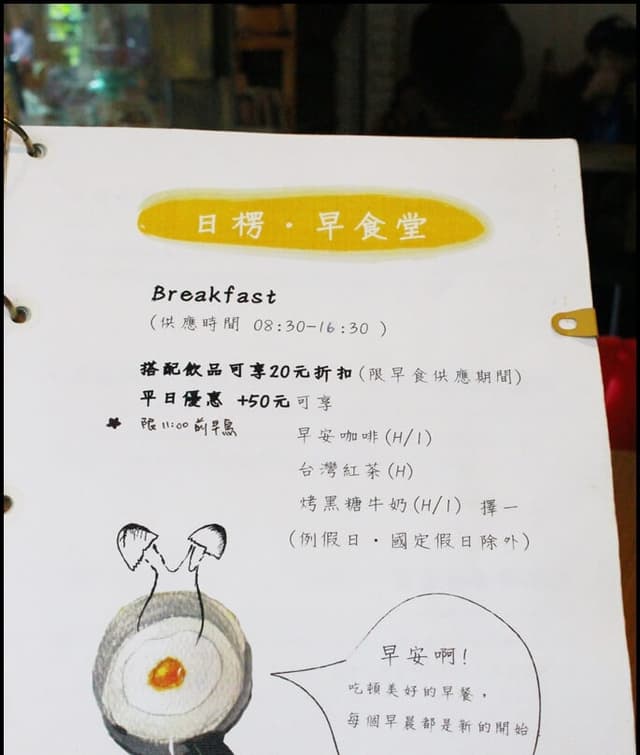 日楞·早食堂
Breakfast
(供應時間 08:30-16:30 )
搭配飲品可享20元折扣(限早食供應期間)
平日優惠 +50元可享
★ 限11:00前早鳥
早安咖啡(H/I)
台灣紅茶(H)
烤黑糖牛奶(H/I) 擇一
(例假日·國定假日除外)
早安啊!
吃頓美好的早餐，
每個早晨都是新的開始